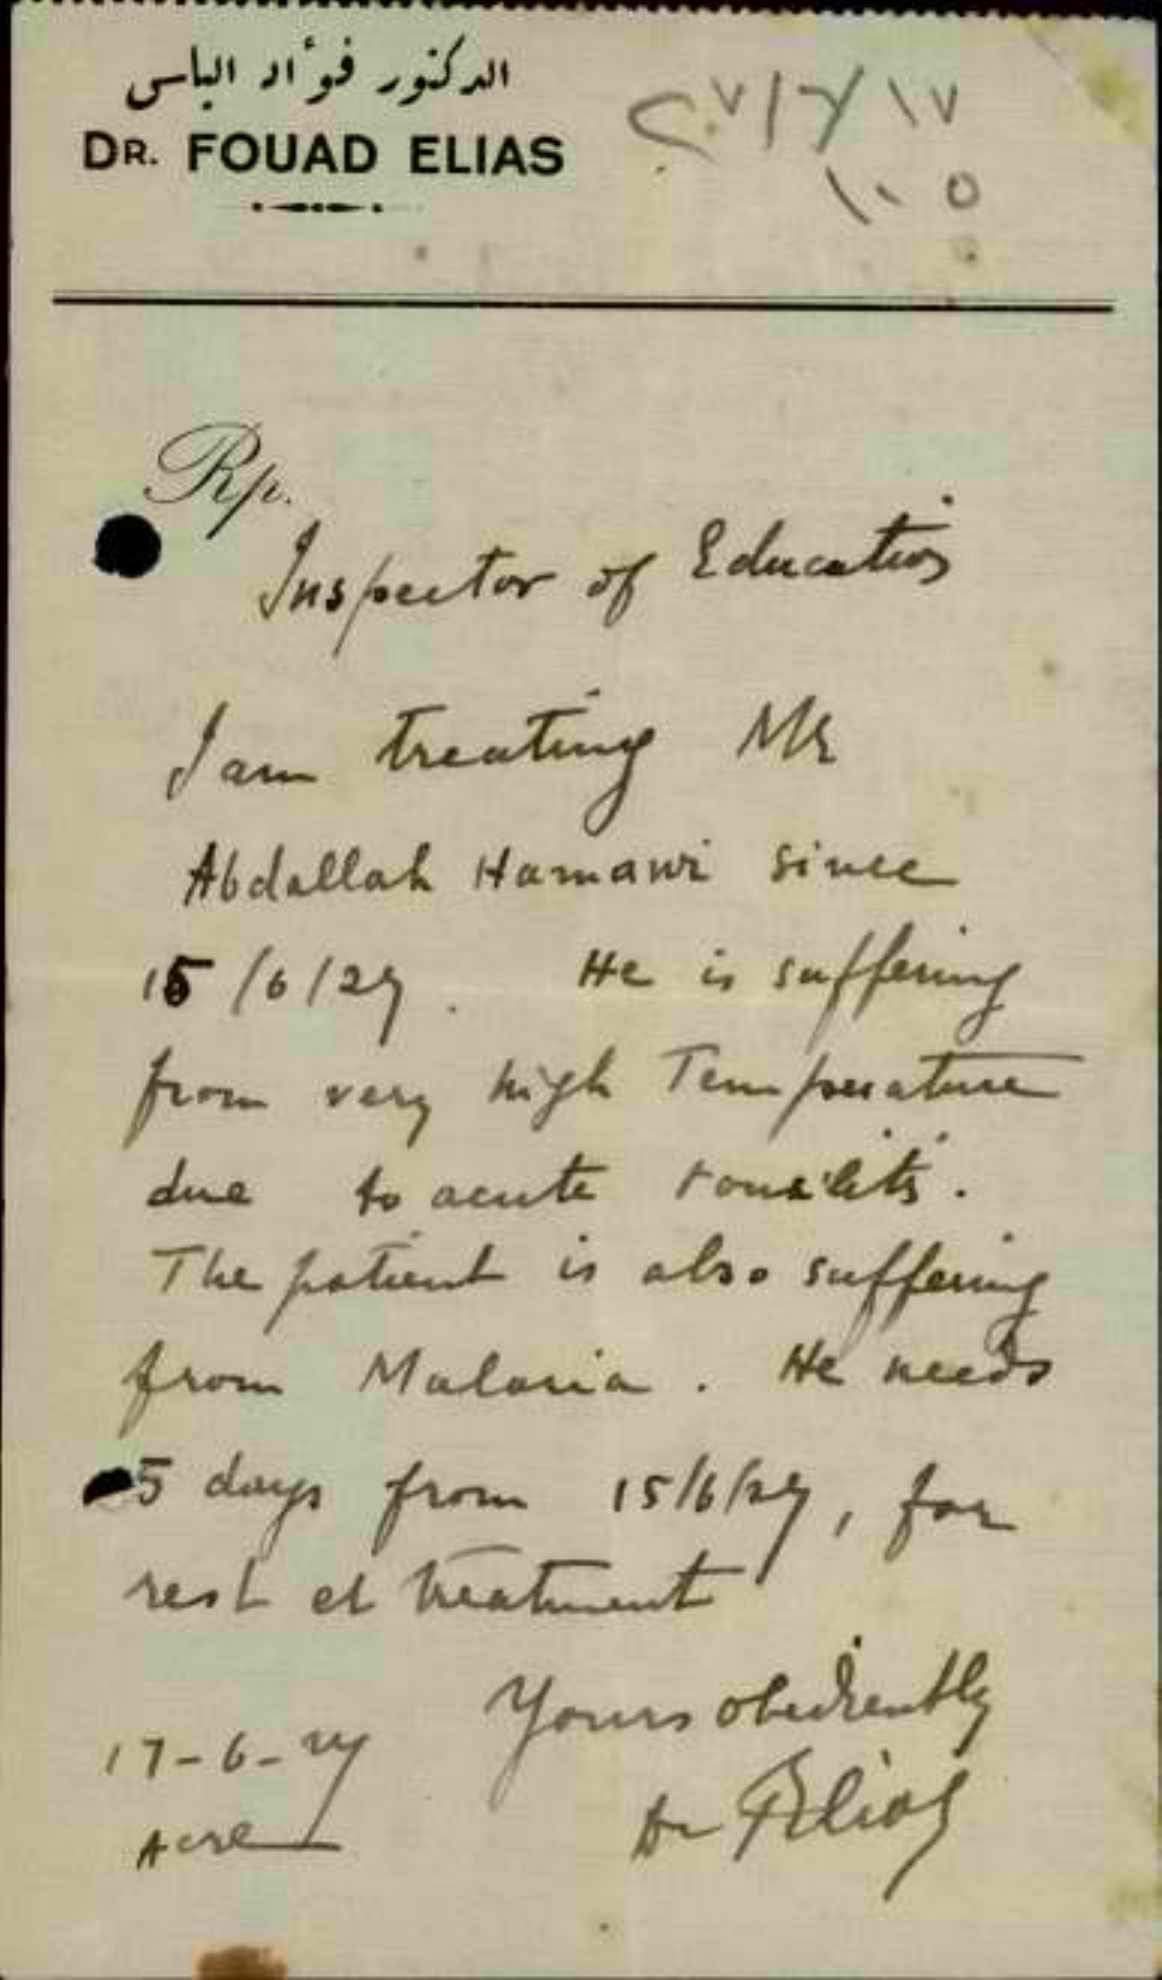 الدكتور فؤاد الياس
DR. FOUAD ELIAS
Rp.
Inspector of Education
I am treating Mr
Abdallah Hamawi since
15/6/27. He is suffering
from very high Temperature
due to acute tonsilitis.
The patient is also suffering
from Malaria. He needs
5 days from 15/6/27, for
rest et treatment
Yours obediently
17-6-27
Dr FElias
Acre